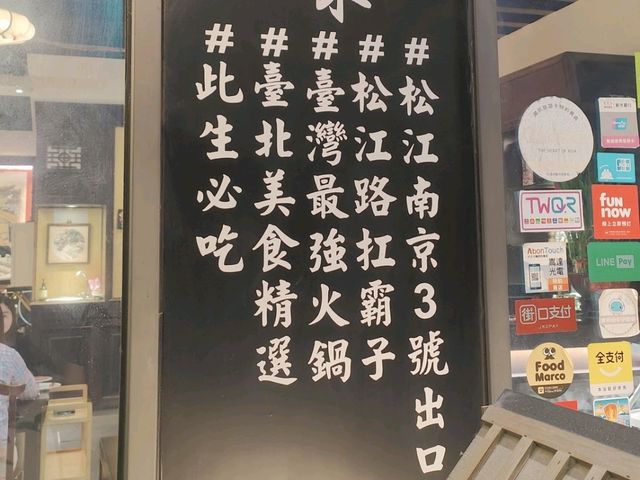 #松江南京3號出口
#松江路扛霸子
#臺灣最強火鍋
#臺北美食精選
#此生必吃
THE HEART OF ASIA
TWQR
fun now
AbonTouch
高達光電
LINE Pay
街口支付
JKOPAY
Food Marco
全支付